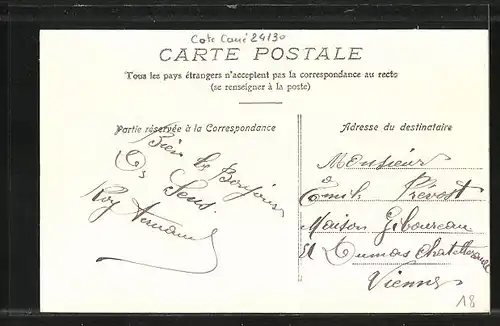 Cote Carré 24130
CARTE POSTALE
Tous les pays étrangers n'acceptent pas la correspondance au recto
(se renseigner à la poste)
Partie réservée à la Correspondance
Bien le Bonjour
De Sens
Roy Armand
Adresse du destinataire
Monsieur
Emile Prévost
Maison Giboureau
et Dumas Chatellerault
Vienne
18